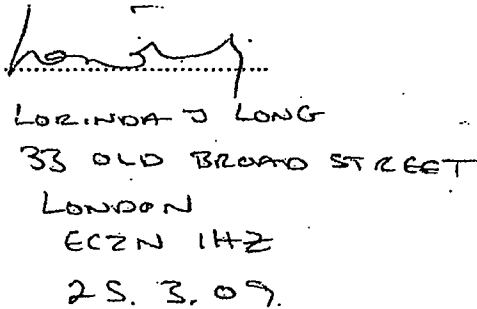 LORINDA J LONG
33 OLD BROAD STREET
LONDON
EC2N 1HZ
25. 3. 09.